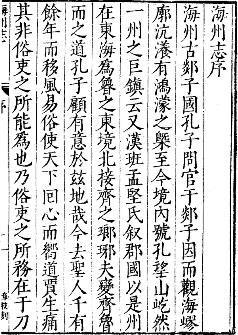 海州志序
海州古郯子國孔子問官于郯子因而觀海嵺
廓沆瀁有鴻濛之槩至今境內號孔望山屹然
一州之巨鎮云又漢班孟堅氏叙郡國以是州
在東海為魯之東境北接齊之瑯琊夫變齊魯
而之道孔子顧有意於兹地哉今去聖人千有
餘年而移風易俗使天下回心而嚮道賈生痛
其非俗吏之所能為也乃俗吏之所務在于刀
海州志
序
一